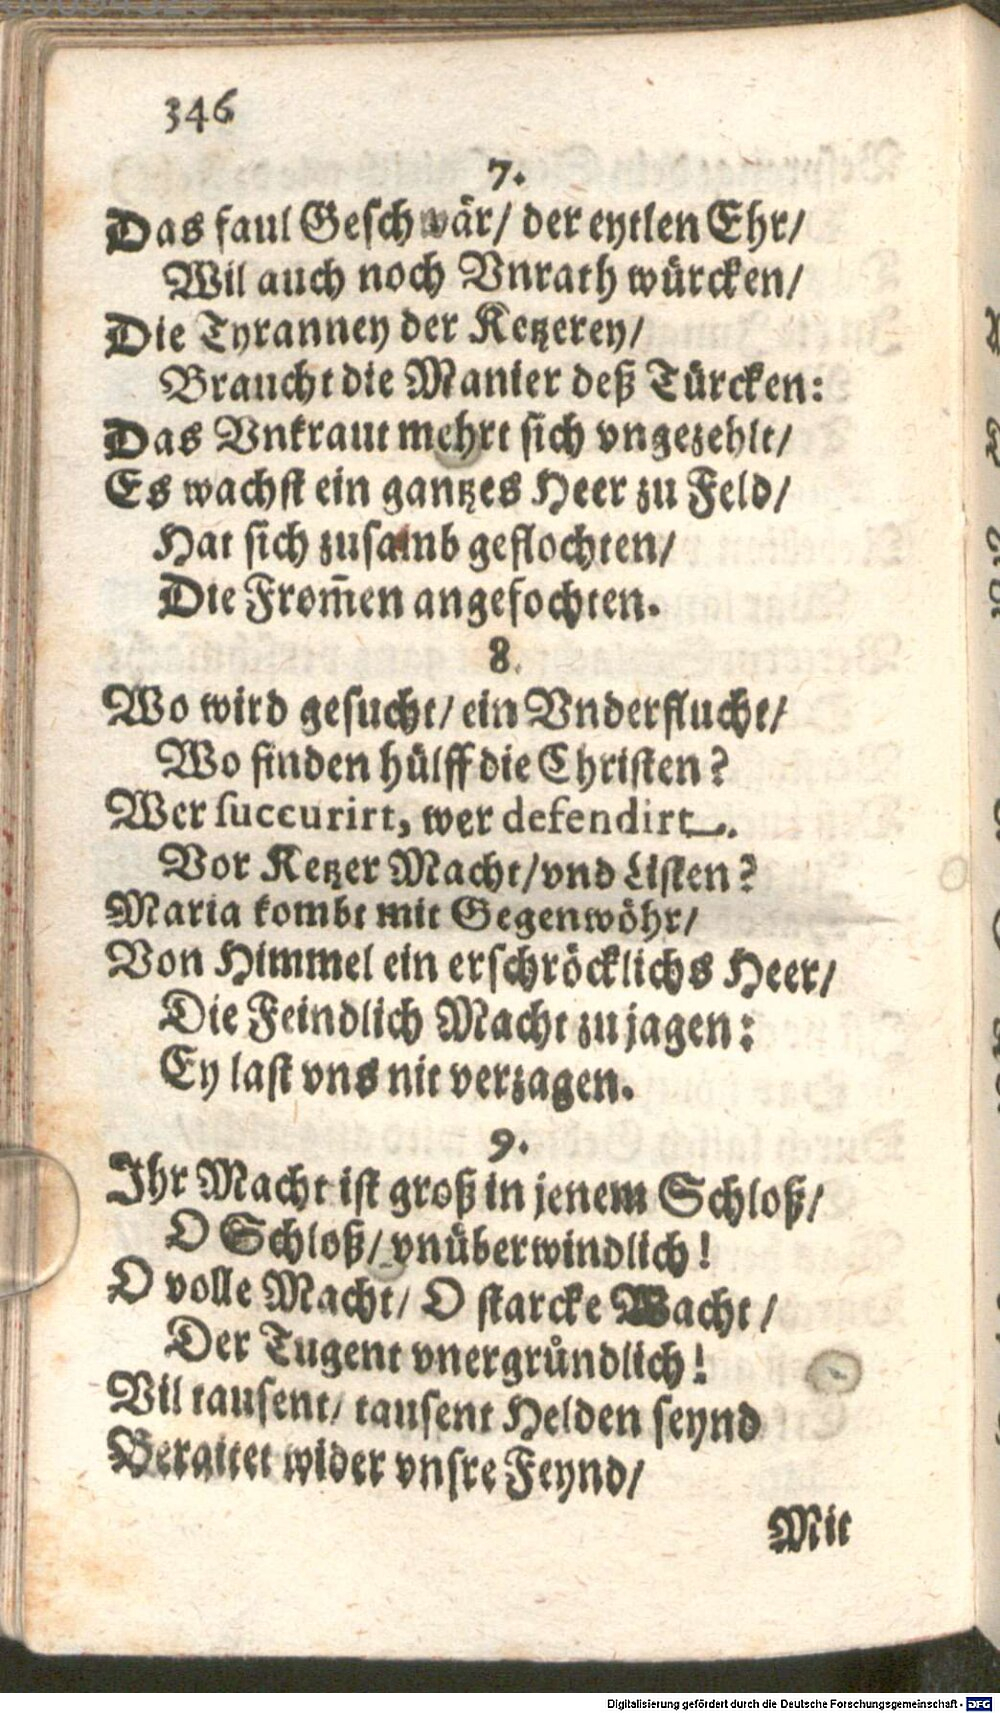 346
7.
Das faul Geschwär/ der eytlen Ehr/
Wil auch noch Vnrath würcken/
Die Tyranney der Ketzerey/
Braucht die Manier deß Türcken:
Das Vnkraut mehrt sich vngezehlt/
Es wachst ein gantzes Heer zu Feld/
Hat sich zusamb geflochten/
Die From̃en angefochten.
8.
Wo wird gesucht/ ein Vnderflucht/
Wo finden hülff die Christen?
Wer succurirt, wer defendirt.
Vor Ketzer Macht/ vnd Listen?
Maria kombt mit Gegenwöhr/
Von Himmel ein erschröcklichs Heer/
Die Feindlich Macht zu jagen:
Ey last vns nit verzagen.
9.
Ihr Macht ist groß in jenem Schloß/
O Schloß/ vnüberwindlich!
O volle Macht/ O starcke Wacht/
Der Tugent vnergrůndlich!
Vil tausent/ tausent Helden seynd
Beraitet wider vnsre Feynd/
Mit
Digitalisierung gefördert durch die Deutsche Forschungsgemeinschaft - DFG